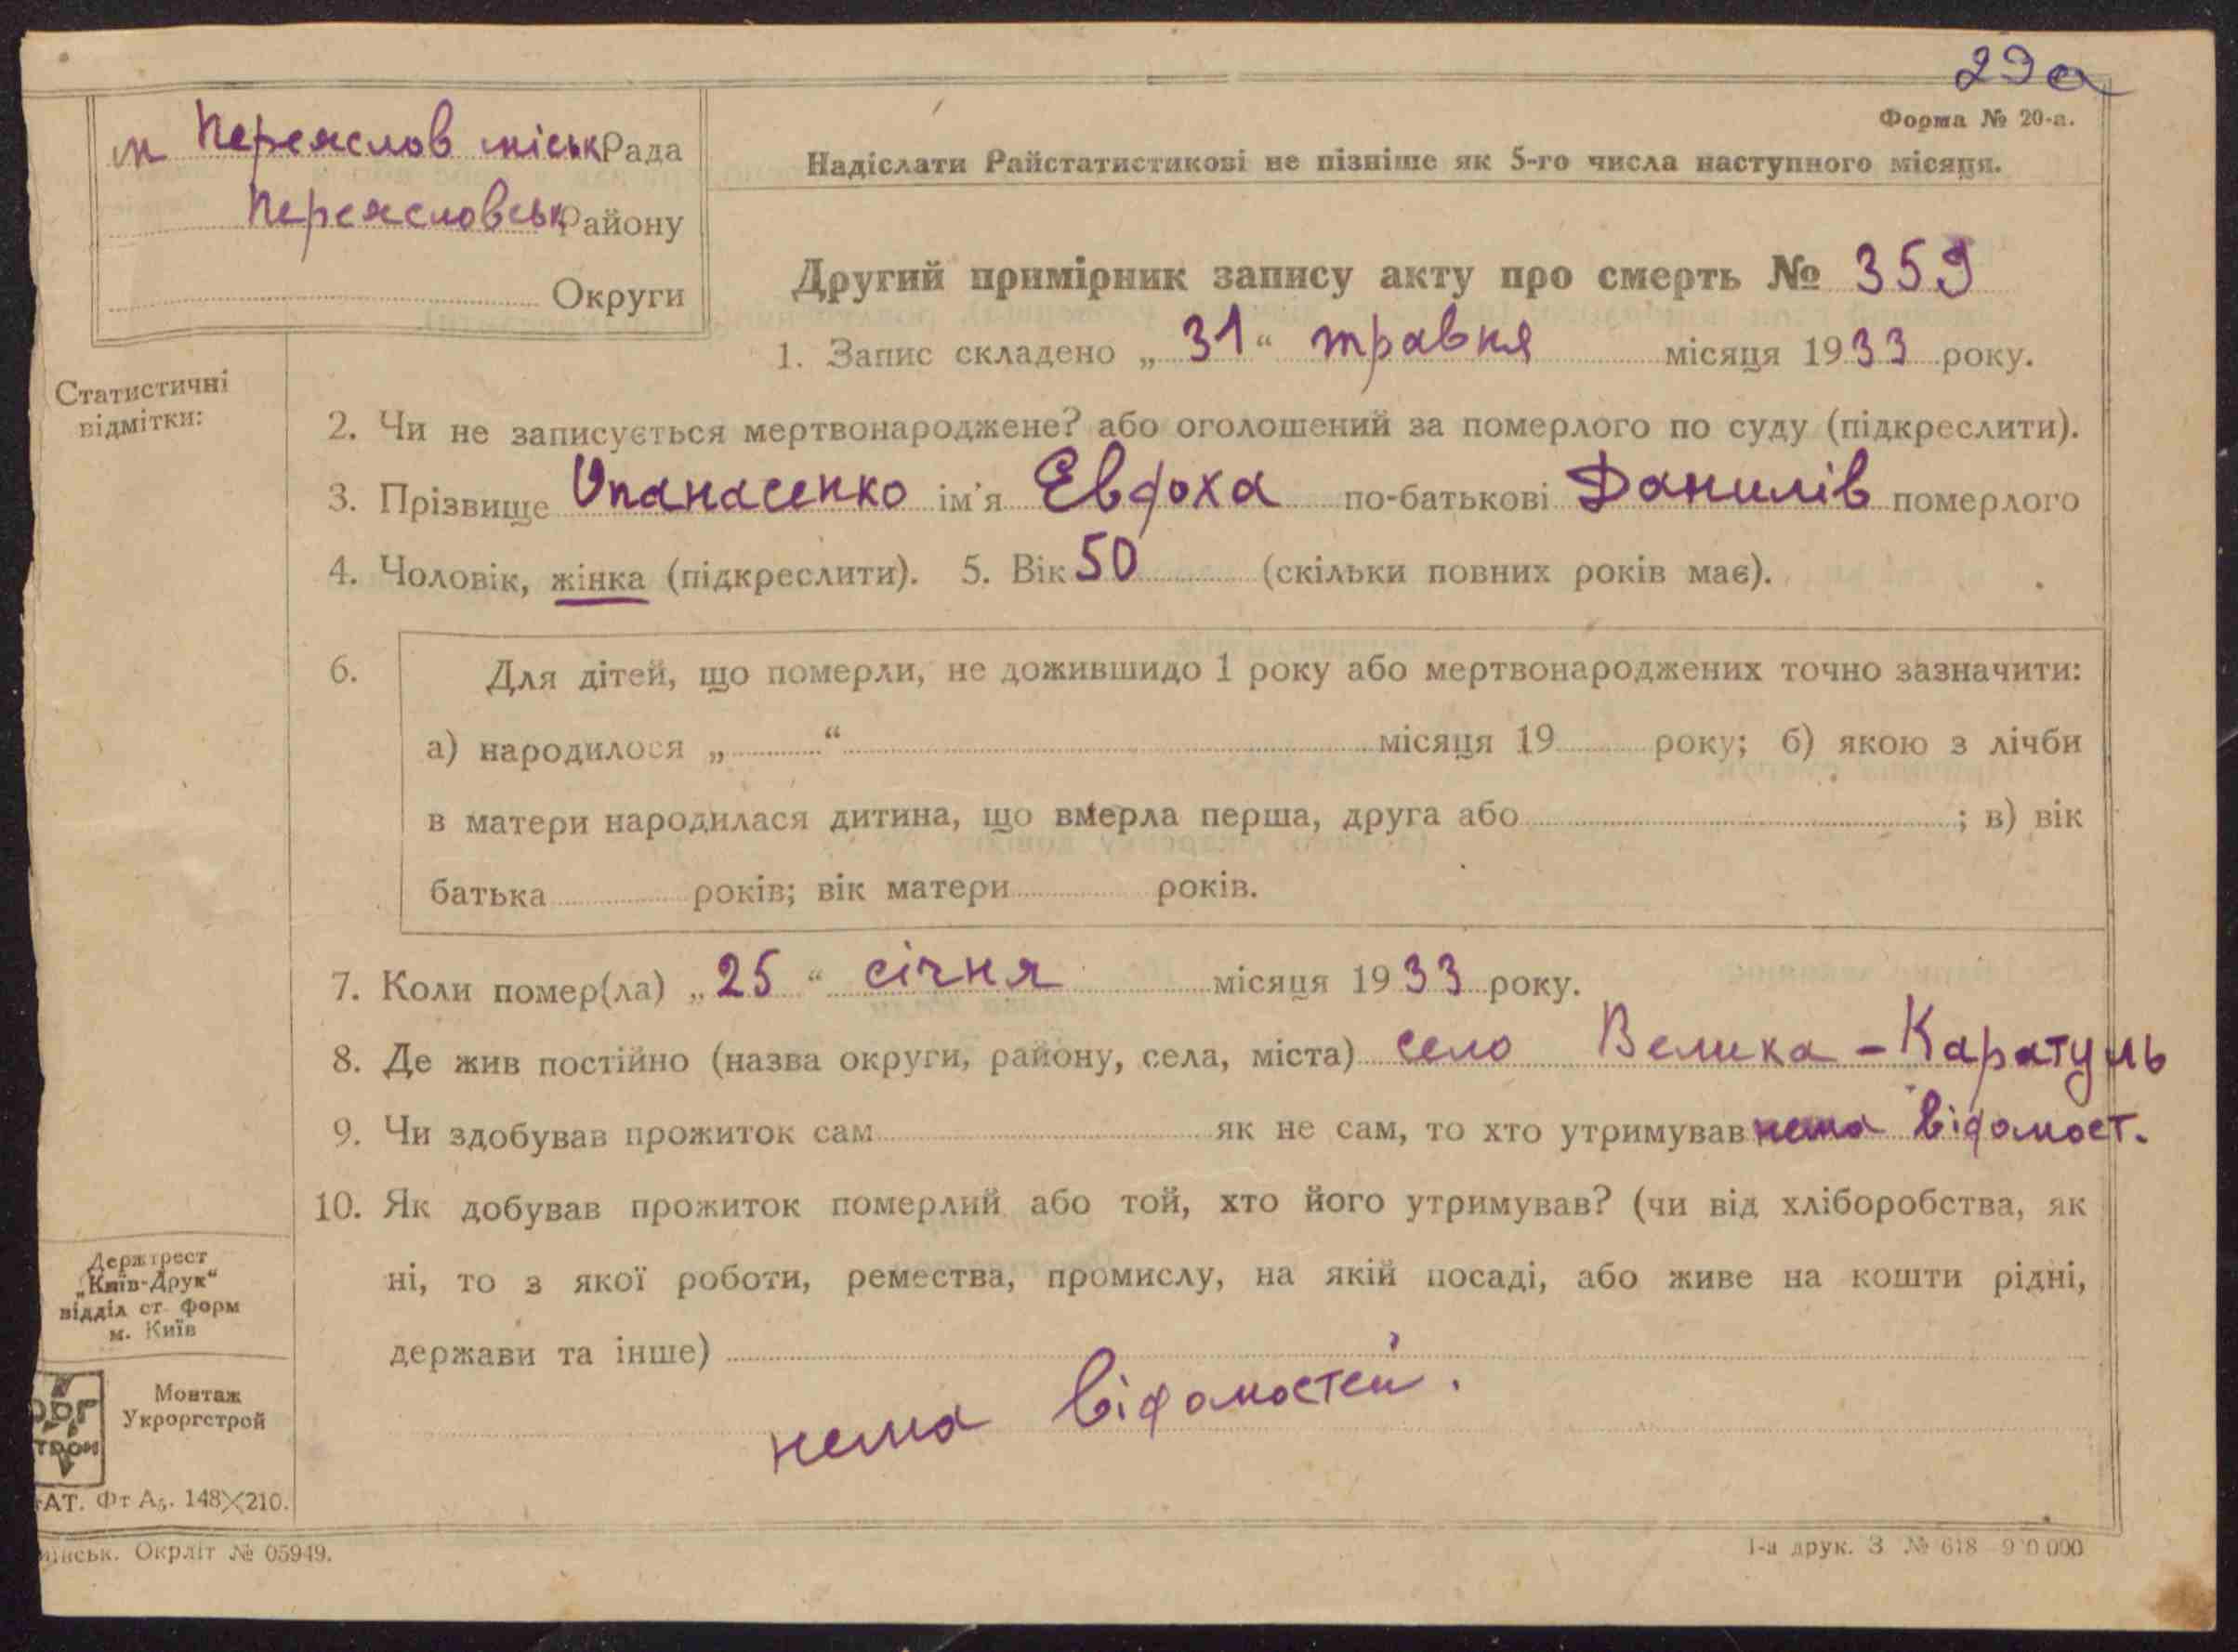 29а
Форма № 20-а.
м Переяслов міськРада
Надіслати Райстатистикові не пізніше як 5-го числа наступного місяця.
Переясловськ Району
Округи
Другий примірник запису акту про смерть № 359
1. Запис складено „ 31 “ травня місяця 1933 року.
Статистичні
відмітки:
2. Чи не записується мертвонароджене? або оголошений за померлого по суду (підкреслити).
3. Прізвище Опанасенко ім’я Евдоха по-батькові Данилів померлого
4. Чоловік, жінка (підкреслити). 5. Вік 50 (скільки повних років має).
6. Для дітей, що померли, не дожившидо 1 року або мертвонароджених точно зазначити:
а) народилося „ “ місяця 19 року; б) якою з лічби
в матери народилася дитина, що вмерла перша, друга або ; в) вік
батька років; вік матери років.
7. Коли помер(ла) „ 25 “ січня місяця 1933 року.
8. Де жив постійно (назва округи, району, села, міста) село Велика - Каратуль
9. Чи здобував прожиток сам як не сам, то хто утримував нема відомост.
10. Як добував прожиток померлий або той, хто його утримував? (чи від хліборобства, як
ні, то з якої роботи, ремества, промислу, на якій посаді, або живе на кошти рідні,
держави та інше)
нема відомостей.
Держтрест
„Київ-Друк“
відділ ст. форм
м. Київ
Монтаж
Укроргстрой
АТ. Фт А5. 148×210.
Окрліт № 05949.
1-а друк. З № 618